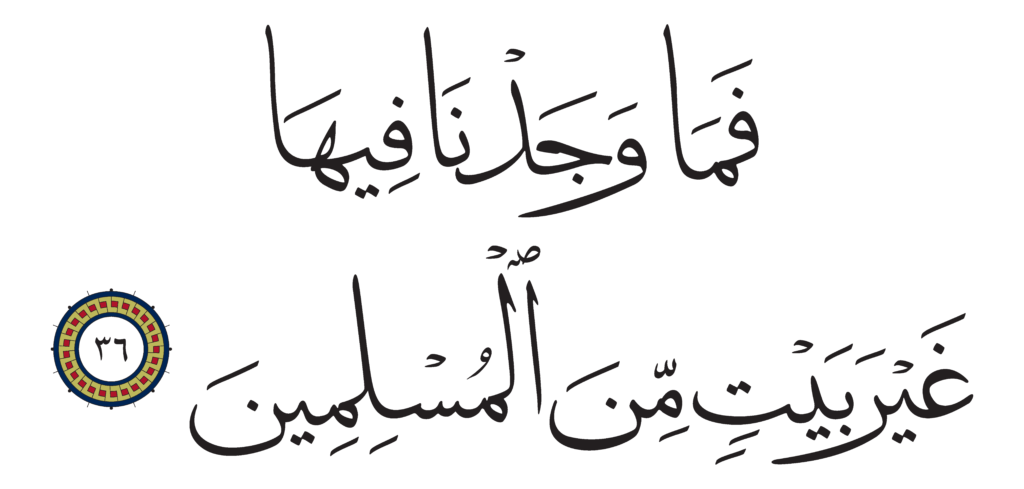 فَمَا وَجَدْنَا فِيهَا
غَيْرَ بَيْتٍ مِّنَ ٱلْمُسْلِمِينَ ٣٦